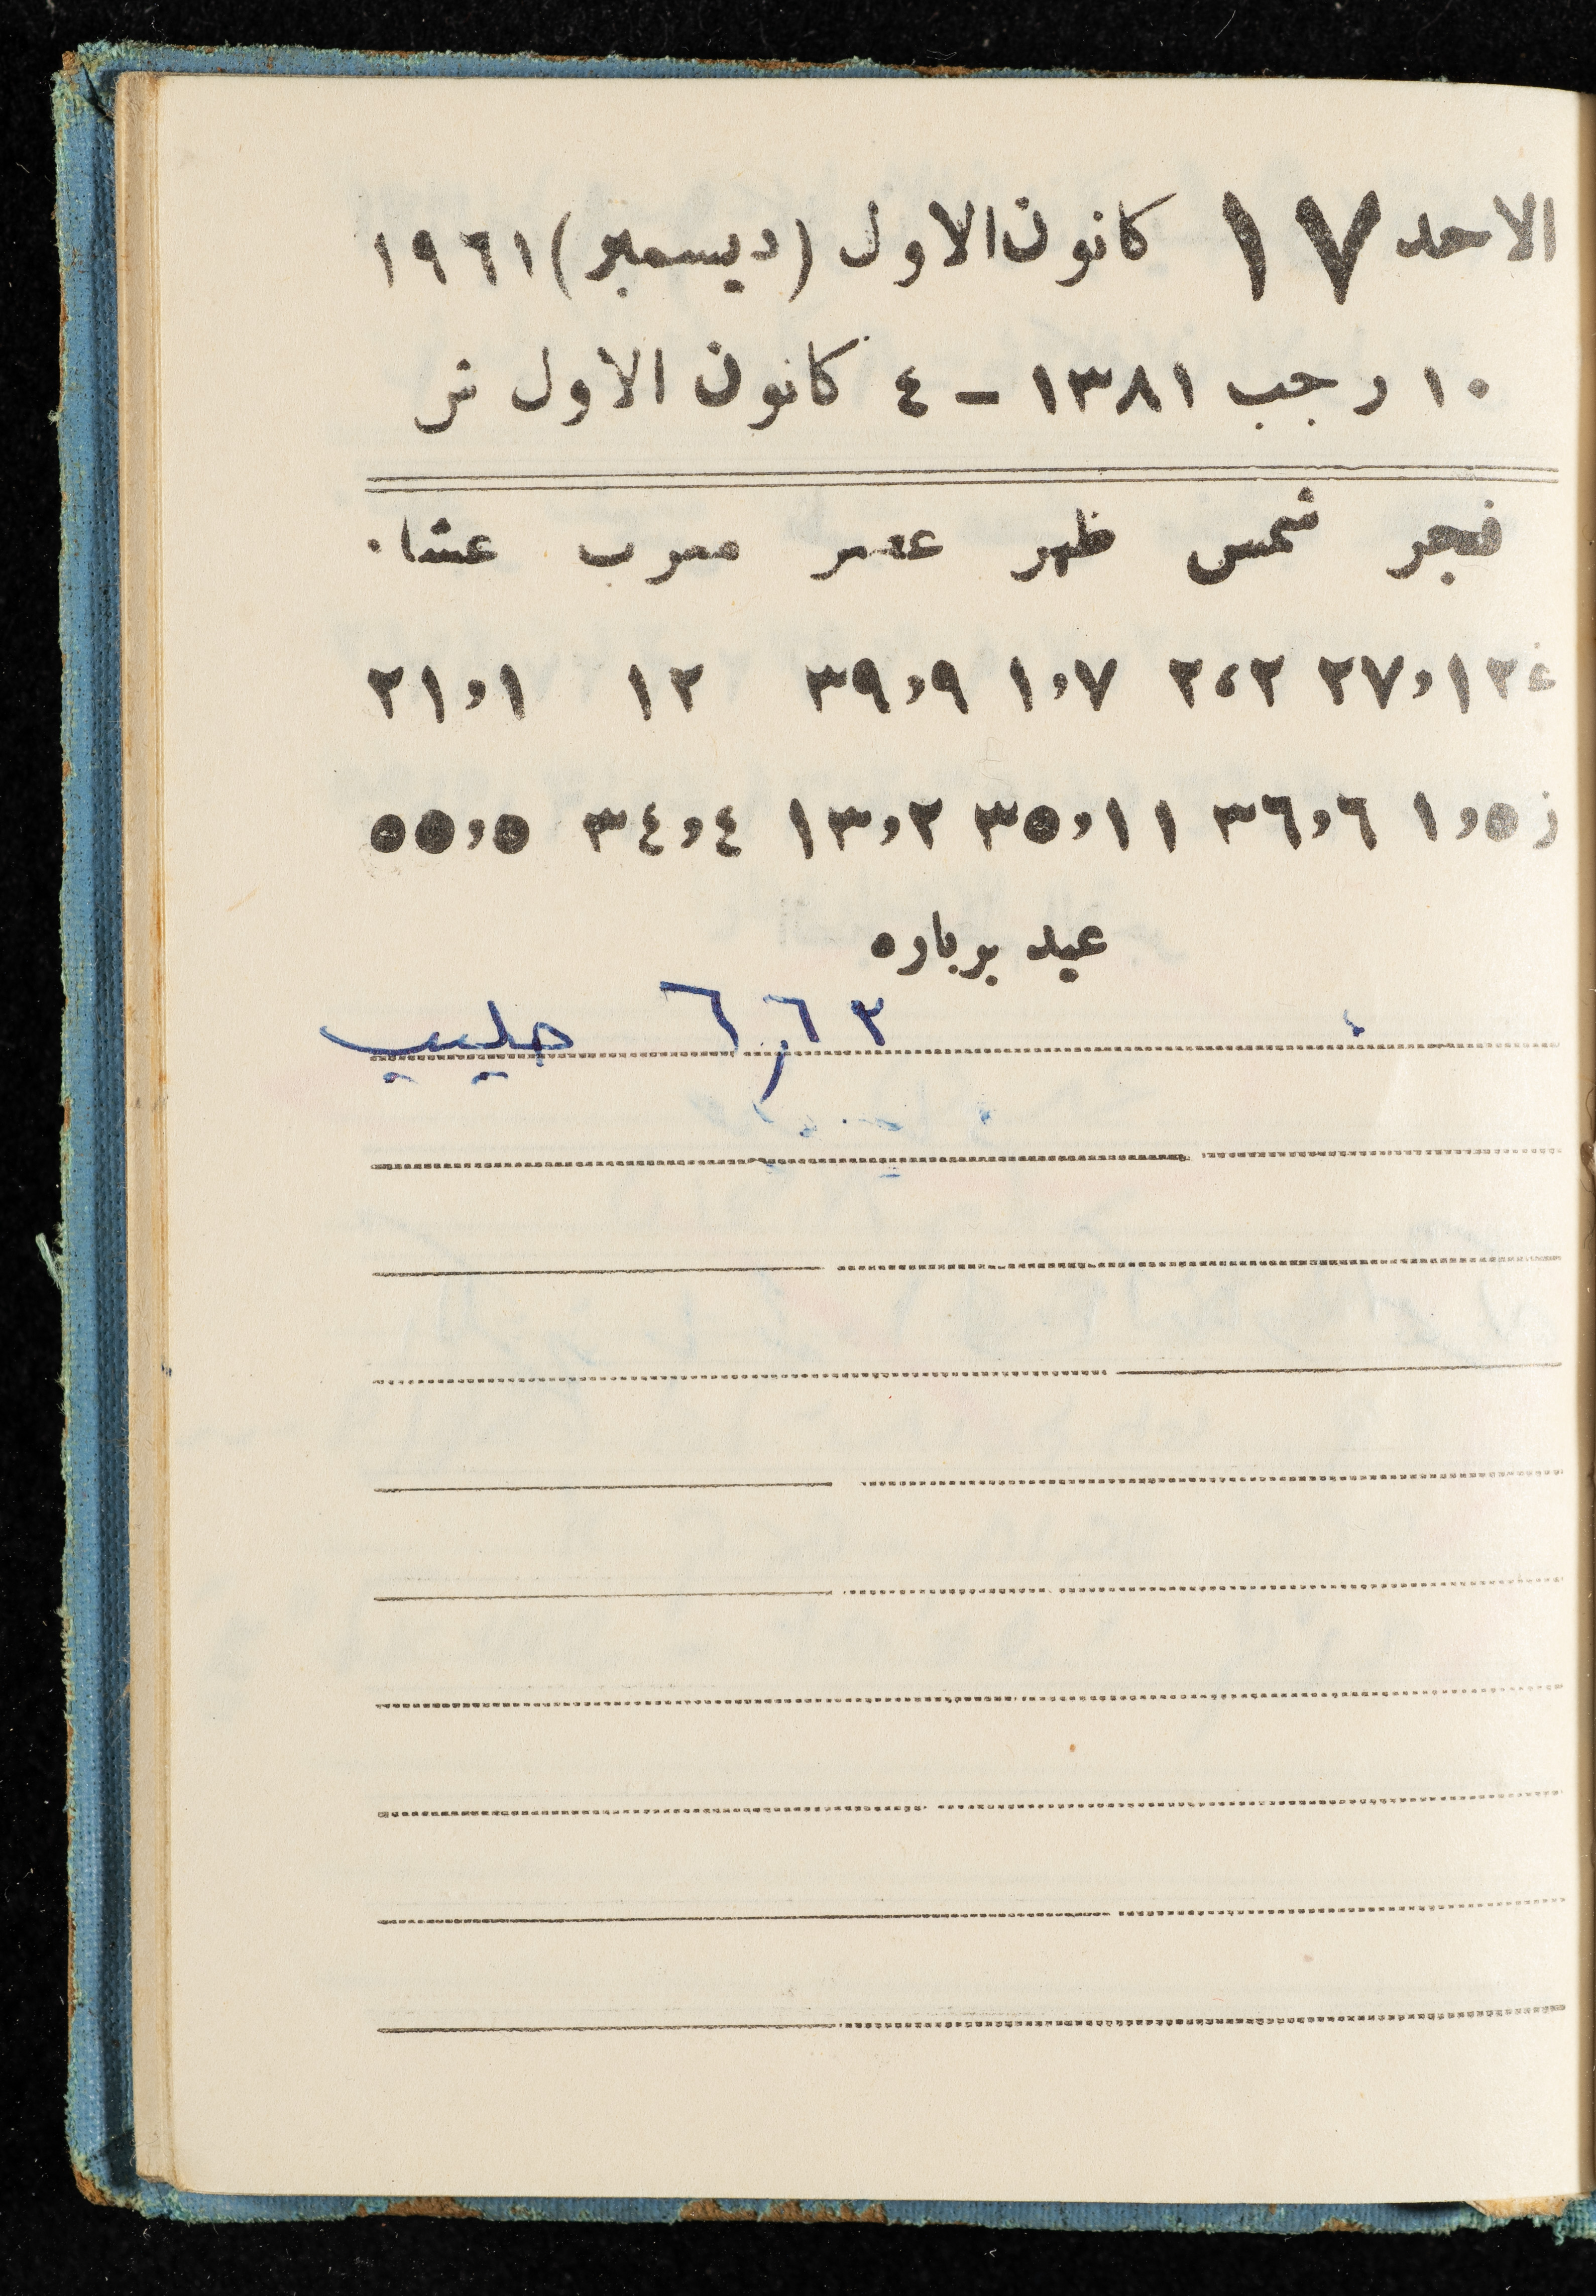 الاحد ١٧ كانون الاول (ديسمبر) ١٩٦١
١٠ رجب ١٣٨١ - ٤ كانون الاول ش
فجر شمس ظهر عصر مغرب عشاء
غ ٢٧,١٢ ٢,٢ ١,٧ ٣٩,٩ ١٢ ٢١,١
ز ١,٥ ٣٦,٦ ٣٥,١١ ١٣,٢ ٣٤,٤ ٥٥,٥
عيد برباره
حليب